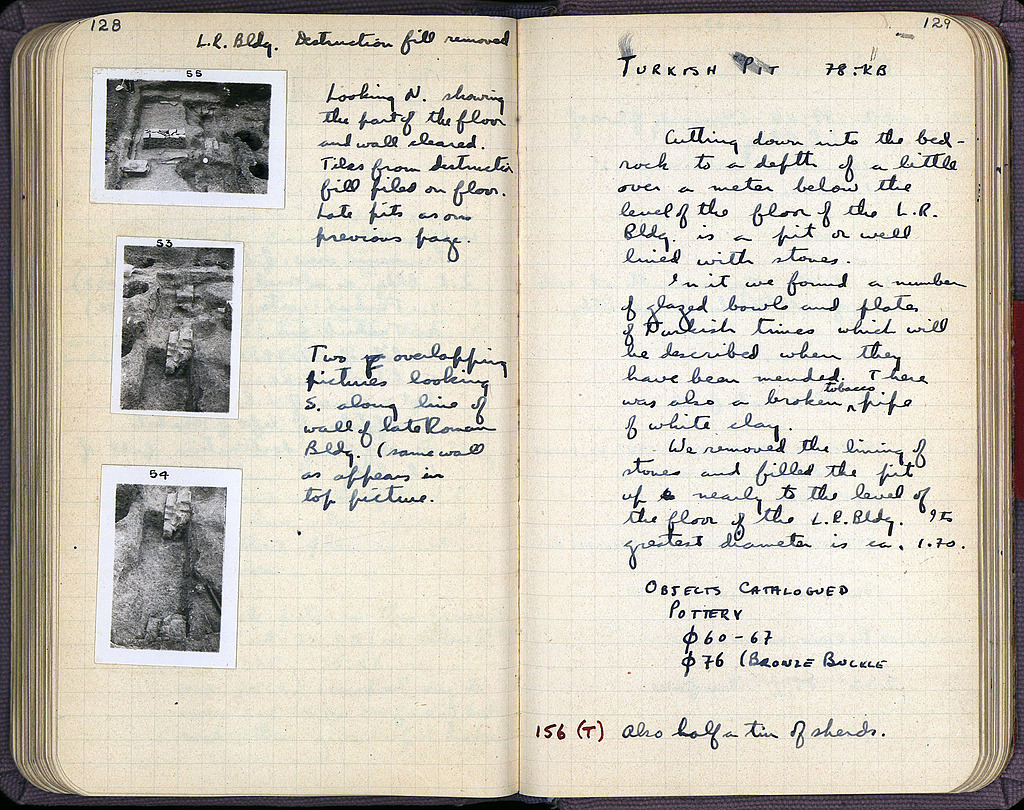 128
L.R. Bldg. Destruction fill removed
55
Looking N. showing
the part of the floor
and wall cleared.
Tiles from destruction
fill piled on floor.
Late pits as on
previous page.
53
Two overlapping
pictures looking
S. along line of
wall of late Roman
Bldg. (same wall
as appears in
top picture.
54
129
TURKISH PIT 78:KB
Cutting down into the bed-
rock to a depth of a little
over a meter below the
level of the floor of the L.R.
Bldg. is a pit or well
lined with stones.
In it we found a number
of glazed bowls and plates
of Turkish times which will
be described when they
have been mended. There
was also a broken tobacco pipe
of white clay.
We removed the lining of
stones and filled the pit
up nearly to the level of
the floor of the L.R. Bldg. Its
greatest diameter is ca. 1.70.
OBJECTS CATALOGUED
POTTERY
φ60-67
φ76 (BRONZE BUCKLE
156 (T) Also half a tin of sherds.